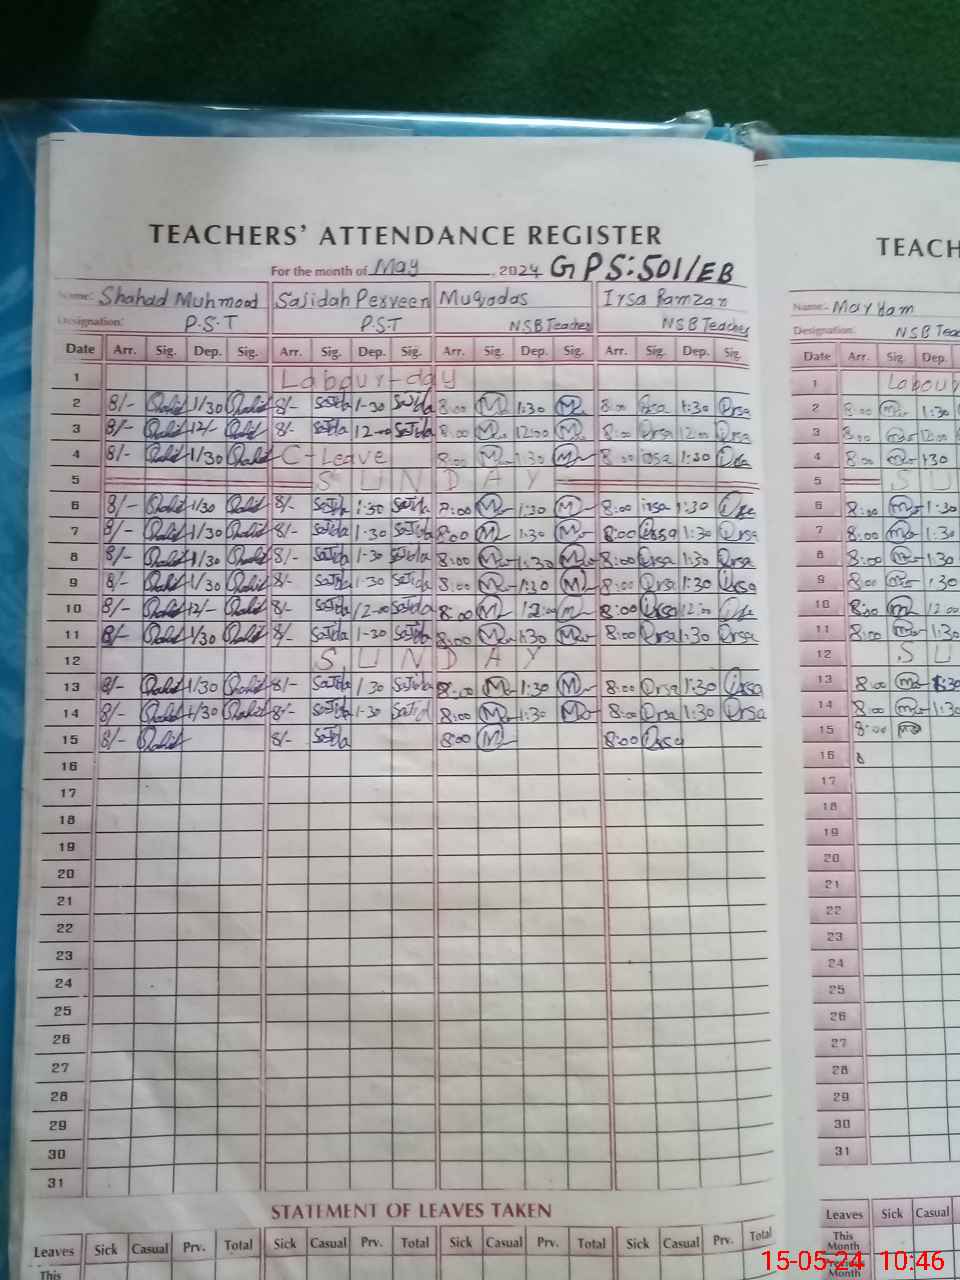 TEACHERS' ATTENDANCE REGISTER
For the month of May, 2024 GPS:501/EB
Name: Shahad Muhmood Sajidah Perveen Muqadas Irsa Ramzan
Designation: P.S.T P.S.T NSB Teacher NSB Teacher
Date Arr. Sig. Dep. Sig. Arr. Sig. Dep. Sig. Arr. Sig. Dep. Sig. Arr. Sig. Dep. Sig.
1 Labour-day
2 8/- 1/30 8/- Sajida 1-30 Sajida 8:00 M 1:30 M 8:00 Irsa 1:30 Irsa
3 8/- 12/- 8/- Sajida 12-00 Sajida 8:00 M 12:00 M 8:00 Irsa 12:00 Irsa
4 8/- 1/30 C-Leave 8:00 M 1:30 M 8:00 Irsa 1:30 Irsa
5 SUNDAY
6 8/- 1/30 8/- Sajida 1:30 Sajida 8:00 M 1:30 M 8:00 irsa 1:30 Irsa
7 8/- 1/30 8/- Sajida 1-30 Sajida 8:00 M 1:30 M 8:00 irsa 1:30 Irsa
8 8/- 1/30 8/- Sajida 1-30 Sajida 8:00 M 1:30 M 8:00 Irsa 1:30 Irsa
9 8/- 1/30 8/- Sajida 1-30 Sajida 8:00 M 1:30 M 8:00 Irsa 1:30 irsa
10 8/- 12/- 8/- Sajida 12-00 Sajida 8:00 M 12:00 M 8:00 irsa 12:00 Irsa
11 8/- 1/30 8/- Sajida 1-30 Sajida 8:00 M 1:30 M 8:00 Irsa 1:30 Irsa
12 SUNDAY
13 8/- 1/30 8/- Sajida 1 30 Sajida 8:00 M 1:30 M 8:00 Irsa 1:30 irsa
14 8/- 1/30 8/- Sajida 1-30 Sajida 8:00 M 1:30 M 8:00 Irsa 1:30 Irsa
15 8/- 8/- Sajida 8:00 M 8:00 Irsa
16
17
18
19
20
21
22
23
24
25
26
27
28
29
30
31
STATEMENT OF LEAVES TAKEN
Leaves Sick Casual Prv. Total Sick Casual Prv. Total Sick Casual Prv. Total Sick Casual Prv. Total
This
TEACH
Name:- Maryam
Designation: NSB Teac
Date Arr. Sig. Dep.
1 Labour
2 8:00 m 1:30
3 8:00 m 12:00
4 8:00 m 1:30
5 SU
6 8:00 m 1:30
7 8:00 m 1:30
8 8:00 m 1:30
9 8:00 m 1:30
10 8:00 m 12:00
11 8:00 m 1:30
12 SU
13 8:00 m 1:30
14 8:00 m 1:30
15 8:00 m
16
17
18
19
20
21
22
23
24
25
26
27
28
29
30
31
Leaves Sick Casual
This
Month
Previous
Month
15-05-24 10:46